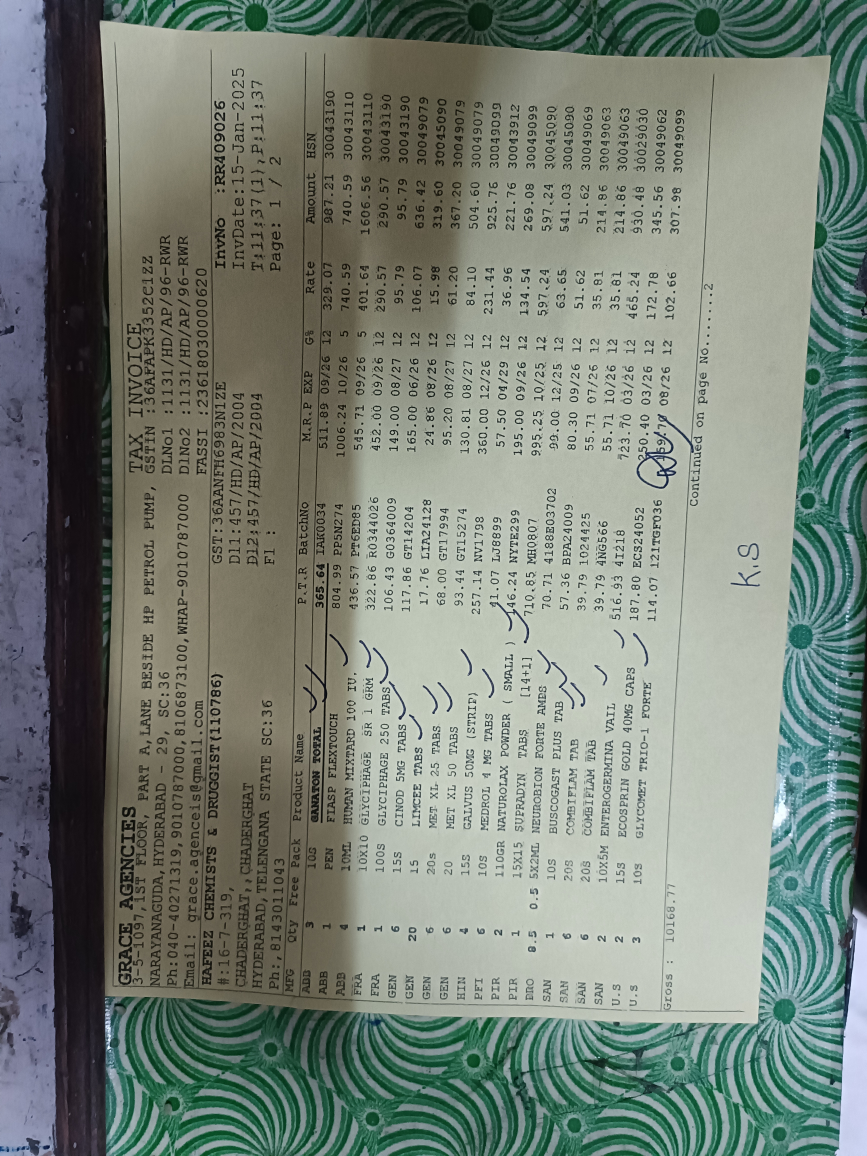 TAX INVOICE
GRACE AGENCIES
3-5-1097,1ST FLOOR, PART A,LANE BESIDE HP PETROL PUMP, GSTIN :36AFAPK3352C1ZZ
NARAYANAGUDA,HYDERABAD - 29, SC:36 DLNo1 :1131/HD/AP/96-RWR
Ph:040-40271319,9010787000,8106873100,WHAP-9010787000 DLNo2 :1131/HD/AP/96-RWR
Email: grace.agenceis@gmail.com FASSI :23618030000620
HAFEEZ CHEMISTS & DRUGGIST(110786) GST:36AANFH6983N1ZE InvNo :RR409026
#:16-7-319, D11:457/HD/AP/2004 InvDate:15-Jan-2025
CHADERGHAT,,CHADERGHAT D12:457/HD/AP/2004 T:11:37(1),P:11:37
HYDERABAD,TELENGANA STATE SC:36 Fl : Page: 1 / 2
Ph:,8143011043
MFG Qty Free Pack Product Name P.T.R BatchNo M.R.P EXP G% Rate Amount HSN
ABB 3 10S GANATON TOTAL 365.64 IAK0034 511.89 09/26 12 329.07 987.21 30043190
ABB 1 PEN FIASP FLEXTOUCH 804.99 PP5N274 1006.24 10/26 5 740.59 740.59 30043110
ABB 4 10ML HUMAN MIXTARD 100 IU. 436.57 PT6ED85 545.71 09/26 5 401.64 1606.56 30043110
FRA 1 10X10 GLYCIPHAGE SR 1 GRM 322.86 R0344026 452.00 09/26 12 290.57 290.57 30043190
FRA 1 100S GLYCIPHAGE 250 TABS 106.43 G0364009 149.00 08/27 12 95.79 95.79 30043190
GEN 6 15S CINOD 5MG TABS 117.86 GT14204 165.00 06/26 12 106.07 636.42 30049079
GEN 20 15 LIMCEE TABS 17.76 LIA24128 24.86 08/26 12 15.98 319.60 30045090
GEN 6 20s MET XL 25 TABS 68.00 GT17994 95.20 08/27 12 61.20 367.20 30049079
GEN 6 20 MET XL 50 TABS 93.44 GT15274 130.81 08/27 12 84.10 504.60 30049079
HIN 4 15S GALVUS 50MG (STRIP) 257.14 NV1798 360.00 12/26 12 231.44 925.76 30049099
PFI 6 10S MEDROL 4 MG TABS 41.07 LJ8899 57.50 04/29 12 36.96 221.76 30043912
PIR 2 110GR NATUROLAX POWDER ( SMALL ) 146.24 NYTE299 195.00 09/26 12 134.54 269.08 30049099
PIR 1 15X15 SUPRADYN TABS [14+1] 710.85 MH0807 995.25 10/25 12 597.24 597.24 30045090
PRO 8.5 0.5 5X2ML NEUROBION FORTE AMPS 70.71 4188E03702 99.00 12/25 12 63.65 541.03 30045090
SAN 1 10S BUSCOGAST PLUS TAB 57.36 BPA24009 80.30 09/26 12 51.62 51.62 30049069
SAN 6 20S COMBIFLAM TAB 39.79 1O24425 55.71 07/26 12 35.81 214.86 30049063
SAN 6 20S COMBIFLAM TAB 39.79 4NG566 55.71 10/26 12 35.81 214.86 30049063
SAN 2 10X5M ENTEROGERMINA VAIL 516.93 4I218 723.70 03/26 12 465.24 930.48 30029030
U.S 2 15S ECOSPRIN GOLD 40MG CAPS 187.80 ECS24052 250.40 03/26 12 172.78 345.56 30049062
U.S 3 10S GLYCOMET TRIO-1 FORTE 114.07 121TGF036 159.70 08/26 12 102.66 307.98 30049099
Gross : 10168.77
Continued on page No.......2
K.S